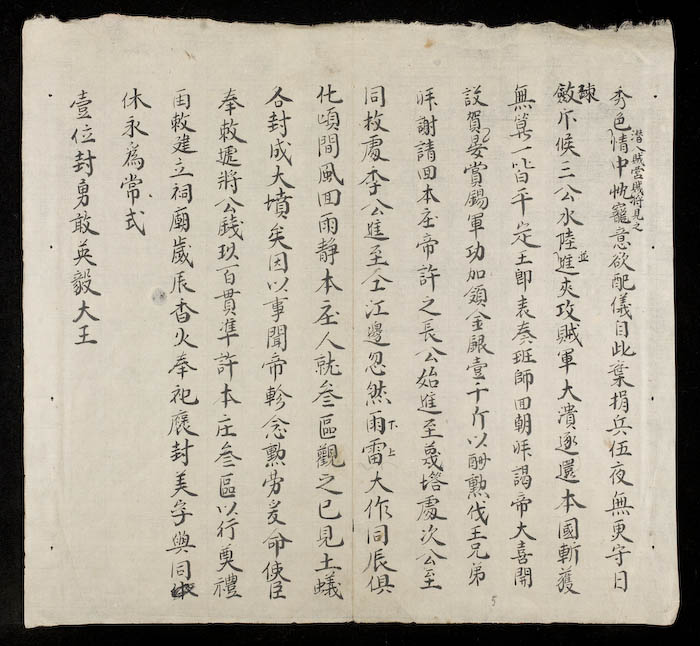 秀色情中忱寵意欲配儀自此棄捐兵伍夜無更守日
潛入賊营賊将見之
疎
斂斥候三公水陸並進夾攻賊軍大潰逐還本國斬獲
無算一皆平定王即表奏班師囬朝拜謁帝大喜開
設賀宴賞錫軍功加領金銀壹千斤以酧勲伐王兄弟
拜謝請囬本庄帝許之長公始進至蔑塔處次公至
同枚處季公進至仝江邊忽然雨雷大作同辰俱
下上
化頃間風囬雨静本庄人就叁區觀之已見土蟻
各封成大墳矣因以事聞帝軫念勲劳爰命使臣
奉敕將公錢玖百貫準許本庄叁區以行奠禮
敕建立祠廟歲辰香火奉祀褒封美字與同
休永為常式
壹位封勇敢英毅大王
5